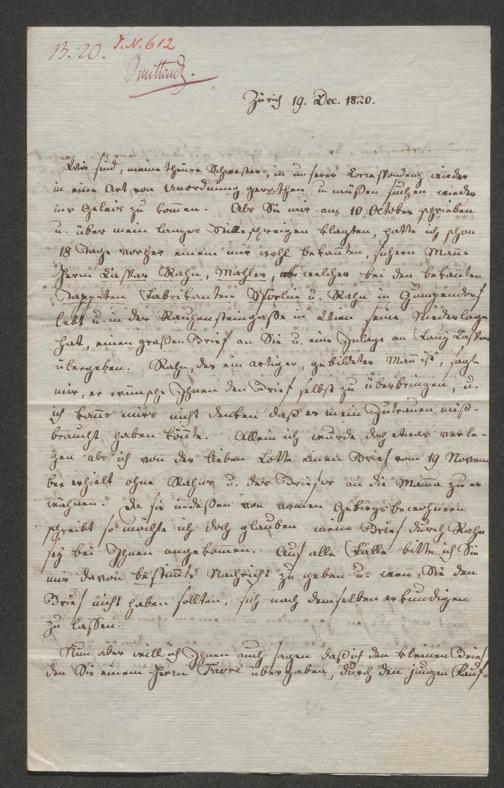 B. 20. J. N. 612
Zürich 19. Dec. 1820.
Wir sind, meine theure Schwester, in unserer Correspondenz wieder
in eine Art von Unordnung gerathen, u. müßen suchen wieder
ins Geleis zu kommen. Als Sie mir am 10 October schrieben
u. über mein langes Stillschweigen klagten, hatte ich schon
18 Tage vorher einem mir wohl bekanten, sichern Mann
Herrn Caspar Rahn, Mahler, welcher bei den bekanten
Tappeten Fabrikanten Spörlin u. Rahn in Gumpendorf
lebt u. in der Rauhensteingaße in Wien seine Niederlage
hat, einen großen Brief an Sie u. eine Inlage an
übergeben. Rahn, der ein artiger, gebildeter Mann ist, sagte
mir, er wünsche Ihnen den Brief selbst zu überbringen, u.
ich kann mirs nicht denken daß er mein Zutrauen miß-
braucht haben könnte. Allein ich wurde doch etwas verle-
gen als ich von der lieben Lotte einen Brief vom 19 Novem
ber erhielt ohne Rahns u. des Briefes an die Mamma zu er
wähnen. Da sie indeßen von armen Gebirgsbewohnern
schreibt so möchte ich doch glauben mein Brief durch Rahn
sey bei Ihnen angekomen. Auf alle Fälle bitte ich Sie
mir davon bestimte Nachricht zu geben u. wenn Sie den
Brief nicht haben sollten, sich nach demselben erkundigen
zu laßen.
Nun aber will ich Ihnen auch sagen daß ich den kleinen Brief
den Sie einem Herrn Favre übergaben, durch den jungen Kauf-